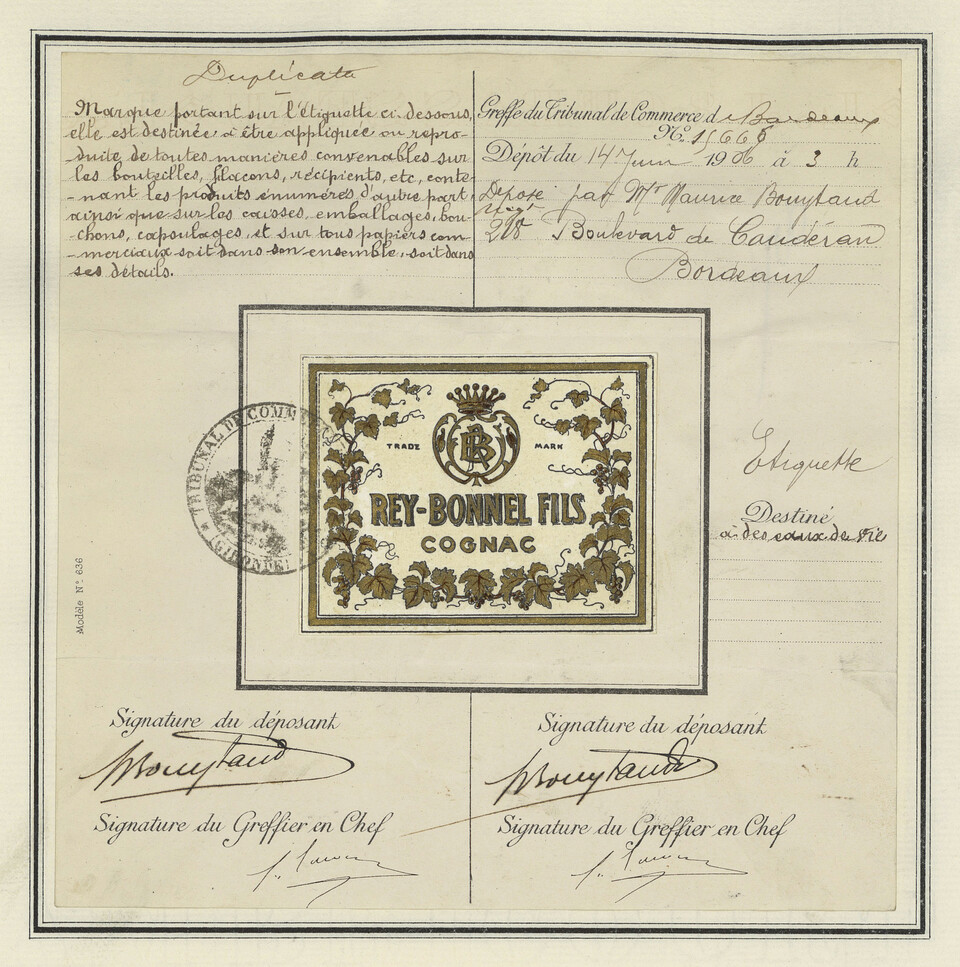 Duplicata
Marque portant sur l'étiquette ci-dessous,
elle est destinée à être appliquée ou repro-
-duite de toutes manières convenables sur
les bouteilles, flacons, récipients, etc, conte-
-nant les produits énumérés d'autre part,
ainsi que sur les caisses, emballages, bou-
chons, capsulages, et sur tous papiers com-
-merciaux soit dans son ensemble, soit dans
ses détails.
Greffe du Tribunal de Commerce d Bordeaux
N°.
Dépôt du 14 Juin 1906 à 3 h
Déposé par Mr Maurice Bouytaud
Boulevard de Caudéran
Bordeaux
TRIBUNAL DE COMMERCE
(GIRONDE)
TRADE MARK
RB
REY-BONNEL FILS
COGNAC
Etiquette
Destiné
à des eaux de vie
Modèle N° 636
Signature du déposant
Bouytaud
Signature du Greffier en Chef
Signature du déposant
Bouytaud
Signature du Greffier en Chef